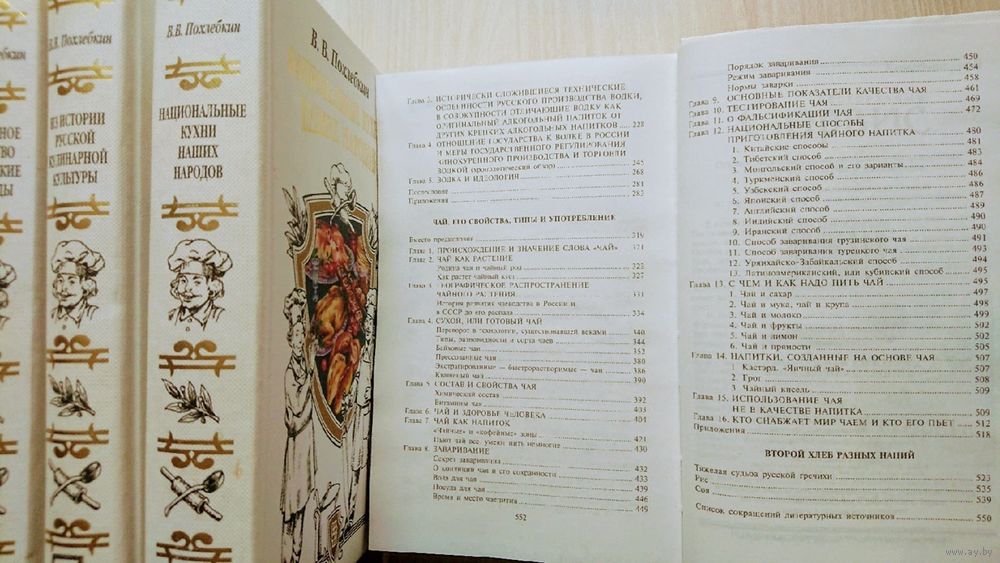 В.В. Похлебкин
ИЗ ИСТОРИИ
РУССКОЙ
КУЛИНАРНОЙ
КУЛЬТУРЫ
В.В. Похлебкин
НАЦИОНАЛЬНЫЕ
КУХНИ
НАШИХ
НАРОДОВ
В. В. Похлебкин
ИСТОРИЧЕСКИ СЛОЖИВШИЕСЯ ТЕХНИЧЕСКИЕ
ОСОБЕННОСТИ РУССКОГО ПРОИЗВОДСТВА ВОДКИ,
В СОВОКУПНОСТИ ОТЛИЧАЮЩИЕ ВОДКУ КАК
ОРИГИНАЛЬНЫЙ АЛКОГОЛЬНЫЙ НАПИТОК ОТ
ДРУГИХ КРЕПКИХ АЛКОГОЛЬНЫХ НАПИТКОВ 228
Глава 4. ОТНОШЕНИЕ ГОСУДАРСТВА К ВОДКЕ В РОССИИ
И МЕРЫ ГОСУДАРСТВЕННОГО РЕГУЛИРОВАНИЯ
ВИНОКУРЕННОГО ПРОИЗВОДСТВА И ТОРГОВЛИ
ВОДКОЙ (хронологический обзор) 245
Глава 5. ВОДКА И ИДЕОЛОГИЯ 268
Послесловие 281
Приложения
ЧАЙ, ЕГО СВОЙСТВА, ТИПЫ И УПОТРЕБЛЕНИЕ
Вместо предисловия 319
Глава 1. ПРОИСХОЖДЕНИЕ И ЗНАЧЕНИЕ СЛОВА «ЧАЙ» 321
Глава 2. ЧАЙ КАК РАСТЕНИЕ
Родина чая и чайный род 325
Как растет чайный куст
Глава 3. ГЕОГРАФИЧЕСКОЕ РАСПРОСТРАНЕНИЕ
ЧАЙНОГО РАСТЕНИЯ 331
История развития чаеводства в России и
в СССР до его распада 334
Глава 4. СУХОЙ, ИЛИ ГОТОВЫЙ ЧАЙ
Переворот в технологии, существовавшей веками 340
Типы, разновидности и сорта чаев 344
Байховые чаи 352
Прессованные чаи 380
Экстрагированные — быстрорастворимые — чаи 386
390
Глава 5. СОСТАВ И СВОЙСТВА ЧАЯ
Химический состав 392
Витамины чая 403
Глава 6. ЧАЙ И ЗДОРОВЬЕ ЧЕЛОВЕКА 404
Глава 7. ЧАЙ КАК НАПИТОК
«Чайные» и «кофейные» зоны 421
Пьют чай все, умеют пить немногие 430
Глава 8. ЗАВАРИВАНИЕ
Секрет заваривания 432
О кондиции чая и его сохранности 433
Вода для чая 439
Посуда для чая 446
Время и место чаепития 449
552
Порядок заваривания 450
Режим заваривания 454
Нормы заварки 458
Глава 9. ОСНОВНЫЕ ПОКАЗАТЕЛИ КАЧЕСТВА ЧАЯ 461
Глава 10. ТЕСТИРОВАНИЕ ЧАЯ 469
Глава 11. О ФАЛЬСИФИКАЦИИ ЧАЯ 472
Глава 12. НАЦИОНАЛЬНЫЕ СПОСОБЫ
ПРИГОТОВЛЕНИЯ ЧАЙНОГО НАПИТКА 480
1. Китайские способы 481
2. Тибетский способ 483
3. Монгольский способ и его варианты 484
4. Туркменский способ 486
5. Узбекский способ 486
6. Японский способ 487
7. Английский способ 489
8. Индийский способ 490
9. Иранский способ 490
10. Способ заваривания грузинского чая 491
11. Способ заваривания турецкого чая 493
12. Урянхайско-Забайкальский способ 494
13. Латиноамериканский, или кубинский способ 495
Глава 13. С ЧЕМ И КАК НАДО ПИТЬ ЧАЙ 495
1. Чай и сахар 497
2. Чай и мука, чай и крупа 498
3. Чай и молоко 499
4. Чай и фрукты 502
5. Чай и лимон 502
6. Чай и пряности 505
Глава 14. НАПИТКИ, СОЗДАННЫЕ НА ОСНОВЕ ЧАЯ 507
1. Кастэрд. «Яичный чай» 507
2. Грог 508
3. Чайный кисель 509
Глава 15. ИСПОЛЬЗОВАНИЕ ЧАЯ
НЕ В КАЧЕСТВЕ НАПИТКА 509
Глава 16. КТО СНАБЖАЕТ МИР ЧАЕМ И КТО ЕГО ПЬЕТ 512
Приложения 518
ВТОРОЙ ХЛЕБ РАЗНЫХ НАЦИЙ
Тяжелая судьба русской гречихи 523
Рис 535
Соя 539
Список сокращений литературных источников 550
www.ay.by